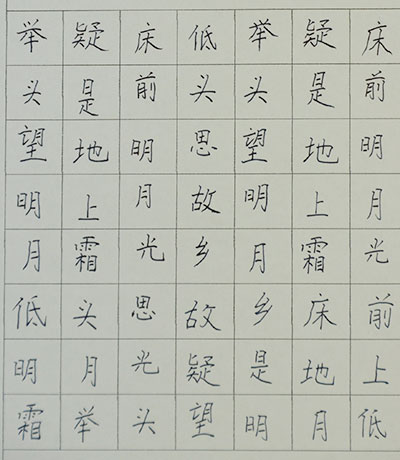 床前明月光
疑是地上霜
举头望明月
低头思故乡
床前明月光
疑是地上霜
举头望明月
低头思故乡床前
明月光疑是地上
霜举头望明月低